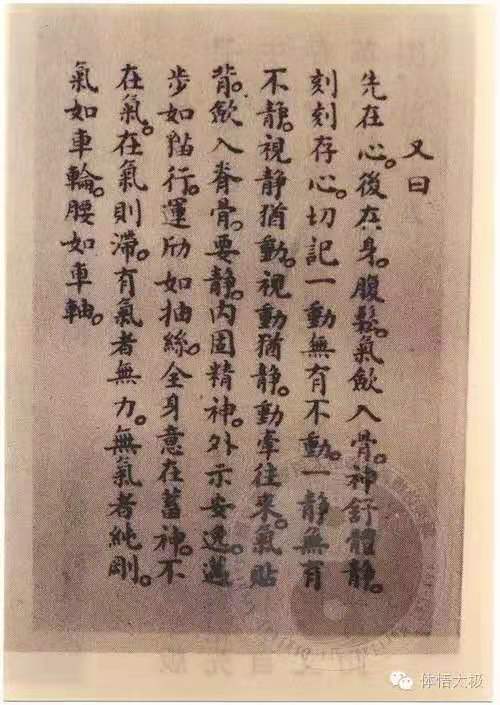 又曰
先在心。後在身。腹鬆。氣歛入骨。神舒體静。
刻刻存心。切記一動無有不動。一静無有
不静。視静猶動。視動猶静。動牽往來。氣貼
背。歛入脊骨。要静。内固精神。外示安逸。邁
步如貓行。運劲如抽絲。全身意在蓄神。不
在氣。在氣則滯。有氣者無力。無氣者純剛。
氣如車輪。腰如車軸。
体悟太极